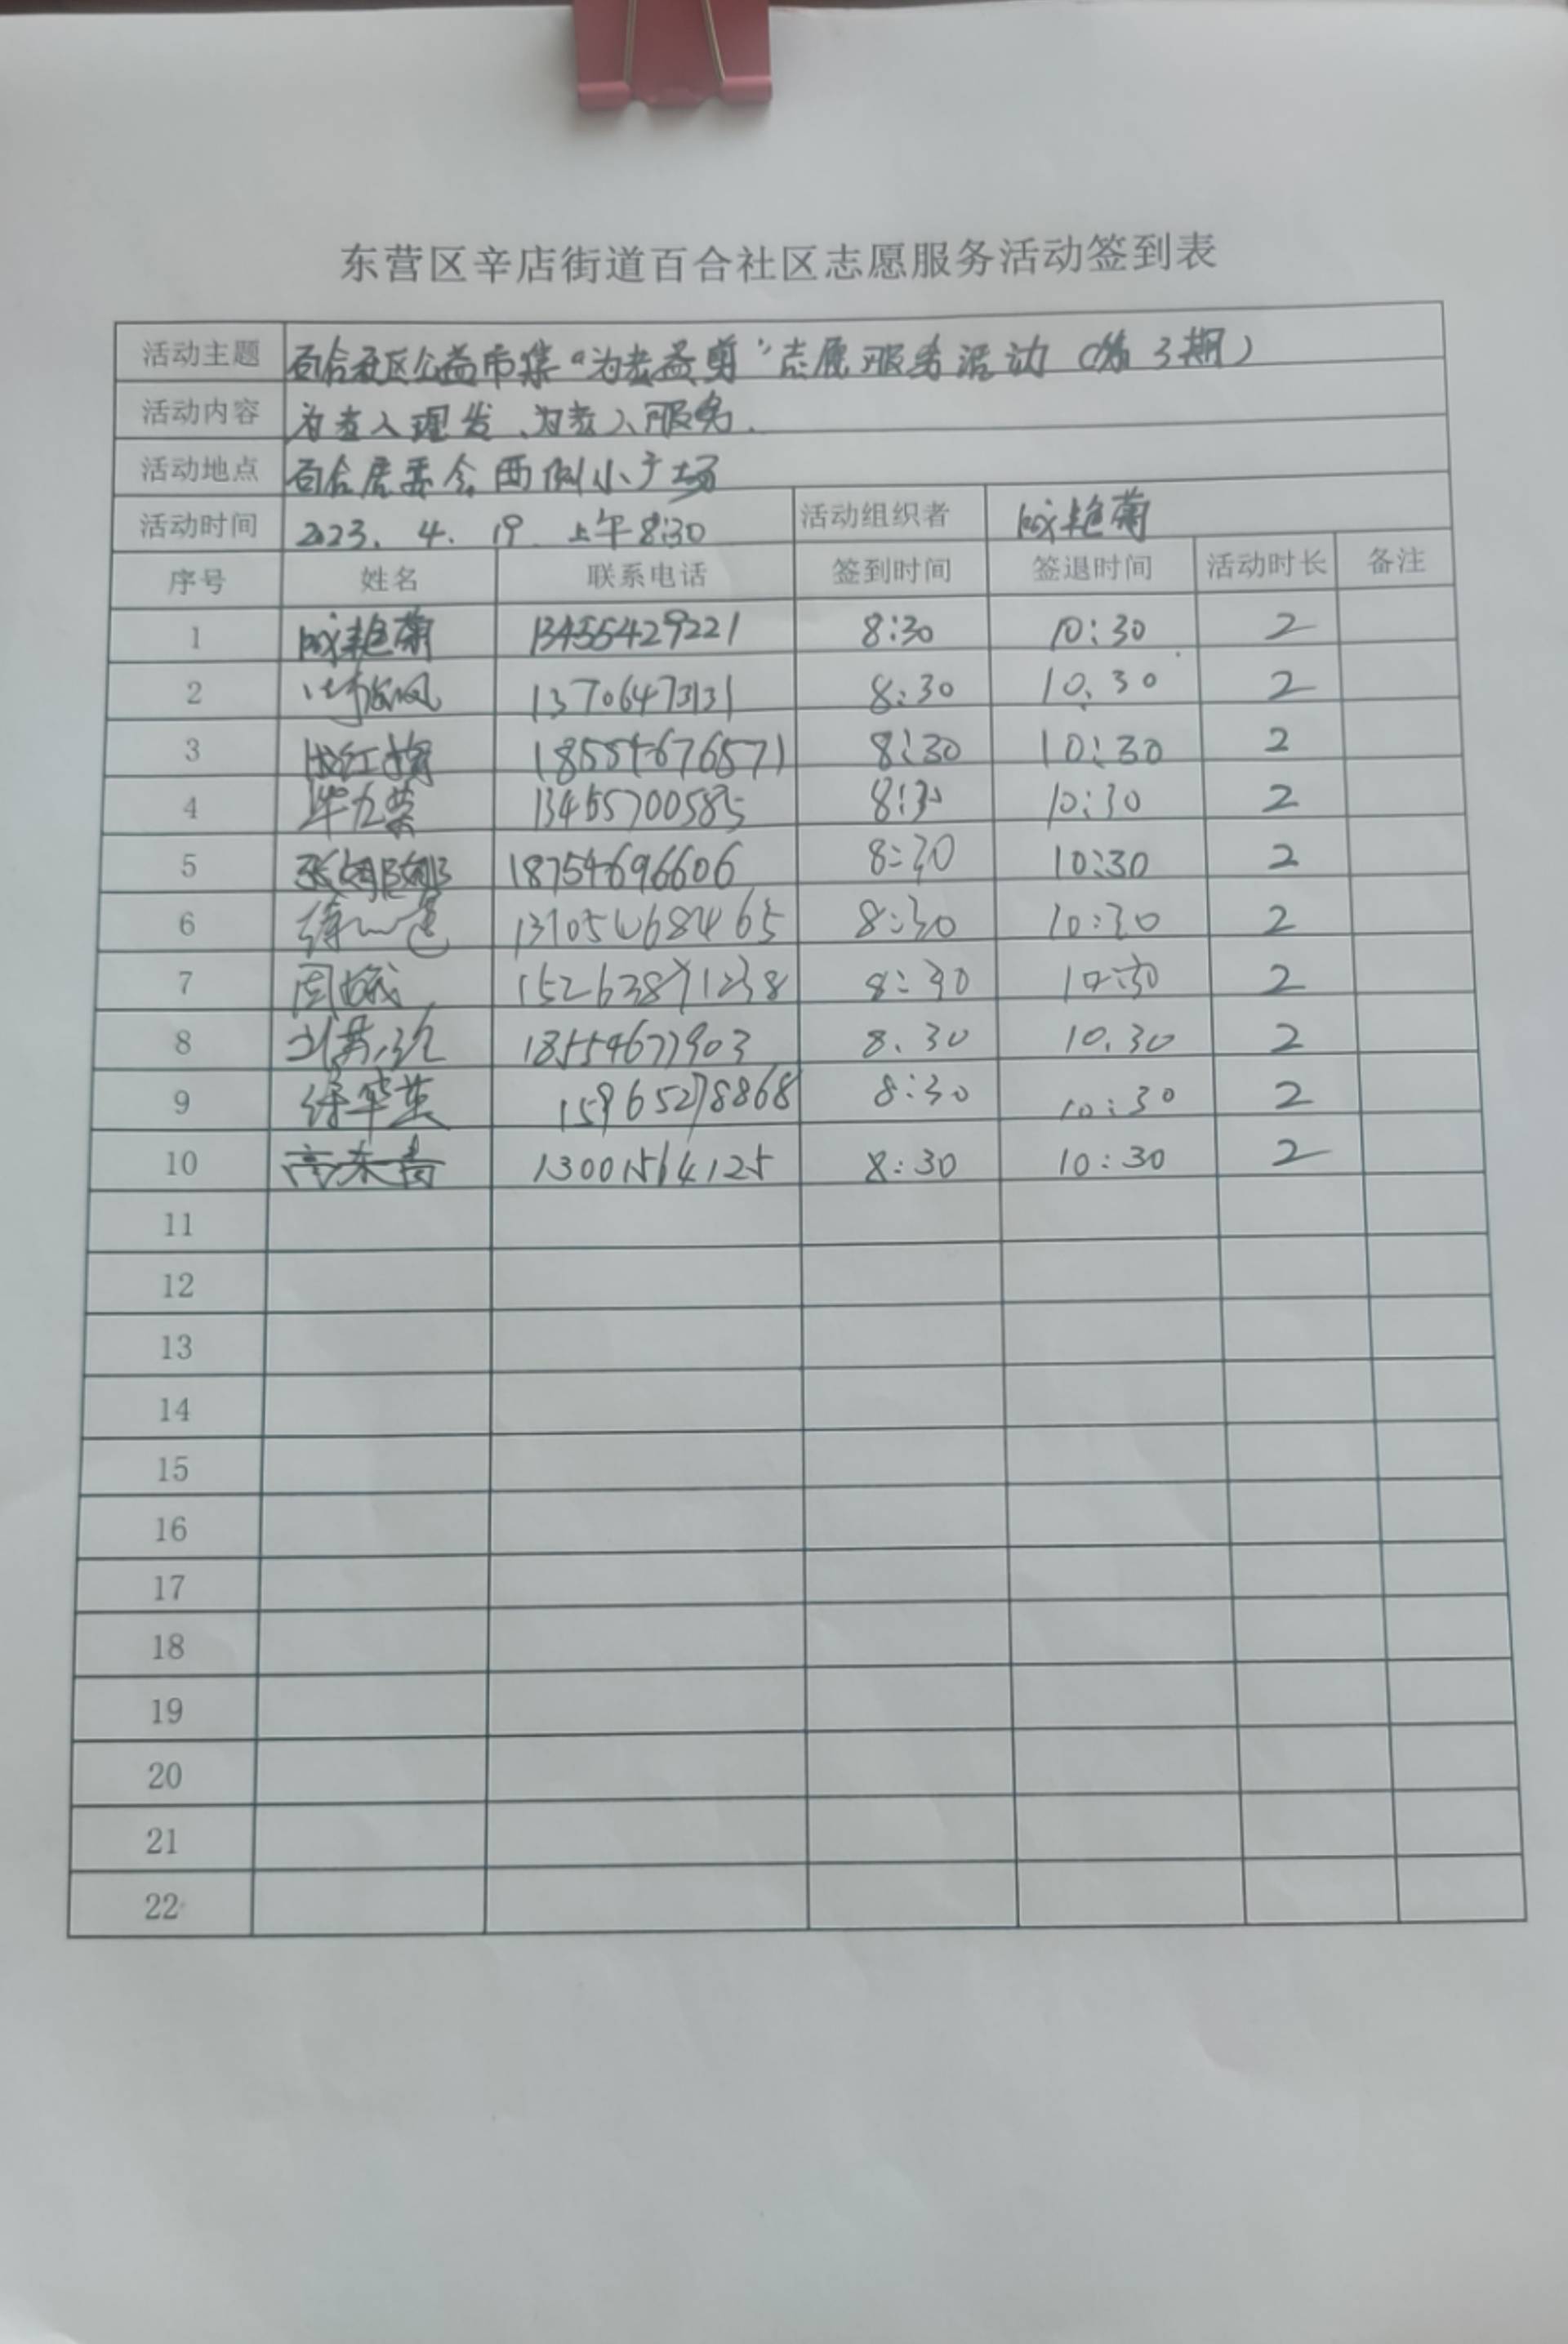 东营区辛店街道百合社区志愿服务活动签到表
活动主题 百合社区公益市集“为老益剪”志愿服务活动(第3期)
活动内容 为老人理发、为老人服务.
活动地点 百合居委会西侧小广场
活动时间 2023. 4. 19. 上午8:30 活动组织者 成艳菊
序号 姓名 联系电话 签到时间 签退时间 活动时长 备注
1 成艳菊 13455429221 8:30 10:30 2
2 13706473131 8:30 10:30 2
3 18554676571 8:30 10:30 2
4 13455700585 8:30 10:30 2
5 张娜娜 18754696606 8:30 10:30 2
6 8:30 10:30 2
7 周城 15263871238 8:30 10:30 2
8 18554677903 8.30 10.30 2
9 徐华英 15965278868 8:30 10:30 2
10 高东青 13001564125 8:30 10:30 2
11
12
13
14
15
16
17
18
19
20
21
22